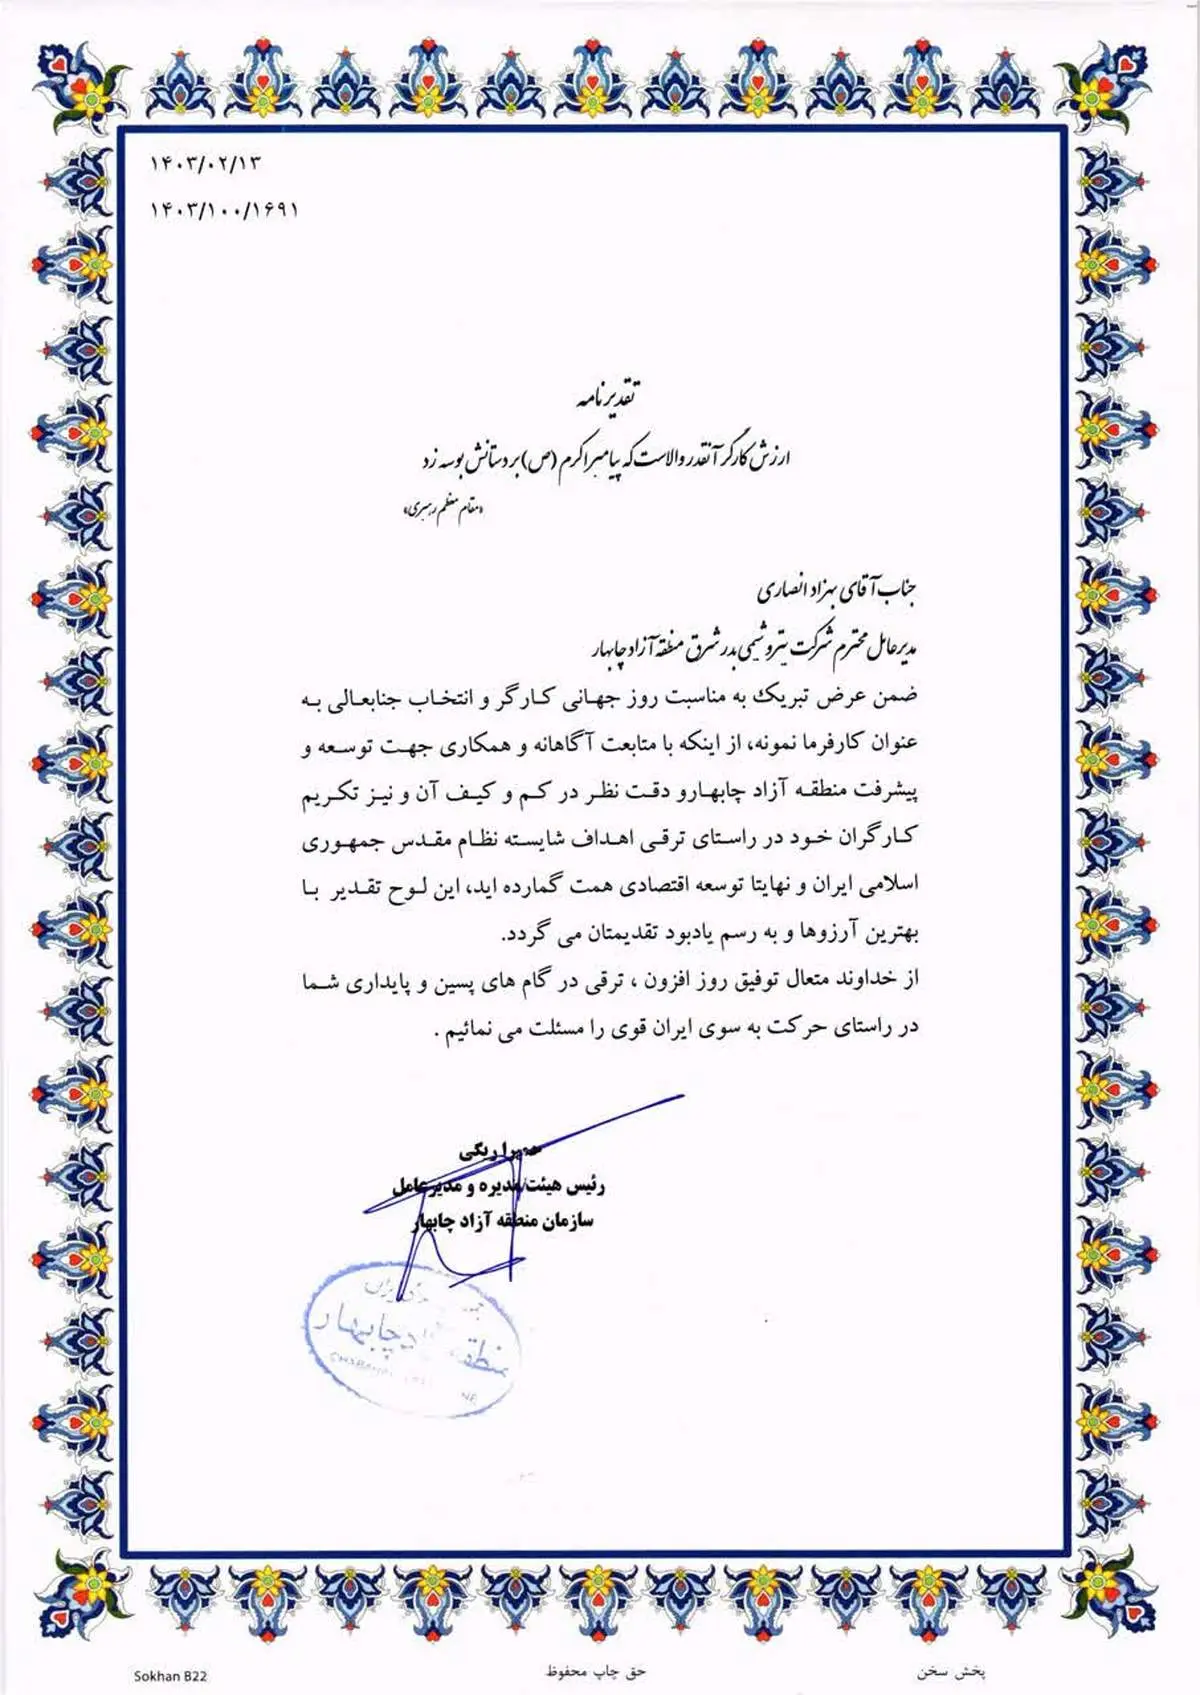 ۱۴۰۳/۰۲/۱۳
۱۴۰۳/۱۰۰/۱۶۹۱
تقدیرنامه
ارزش کارگر آنقدر والاست که پیامبر اکرم (ص) بر دستانش بوسه زد
«مقام معظم رهبری»
جناب آقای بهزاد انصاری
مدیرعامل محترم شرکت پتروشیمی بدر شرق منطقه آزاد چابهار
ضمن عرض تبریک به مناسبت روز جهانی کارگر و انتخاب جنابعالی به
عنوان کارفرما نمونه، از اینکه با متابعت آگاهانه و همکاری جهت توسعه و
پیشرفت منطقه آزاد چابهارو دقت نظر در کم و کیف آن و نیز تکریم
کارگران خود در راستای ترقی اهداف شایسته نظام مقدس جمهوری
اسلامی ایران و نهایتا توسعه اقتصادی همت گمارده اید، این لوح تقدیر با
بهترین آرزوها و به رسم یادبود تقدیمتان می گردد.
از خداوند متعال توفیق روز افزون ، ترقی در گام های پسین و پایداری شما
در راستای حرکت به سوی ایران قوی را مسئلت می نمائیم .
ریگی
رئیس هیئت مدیره و مدیرعامل
سازمان منطقه آزاد چابهار
ایران
چابهار
Sokhan B22
حق چاپ محفوظ
پخش سخن